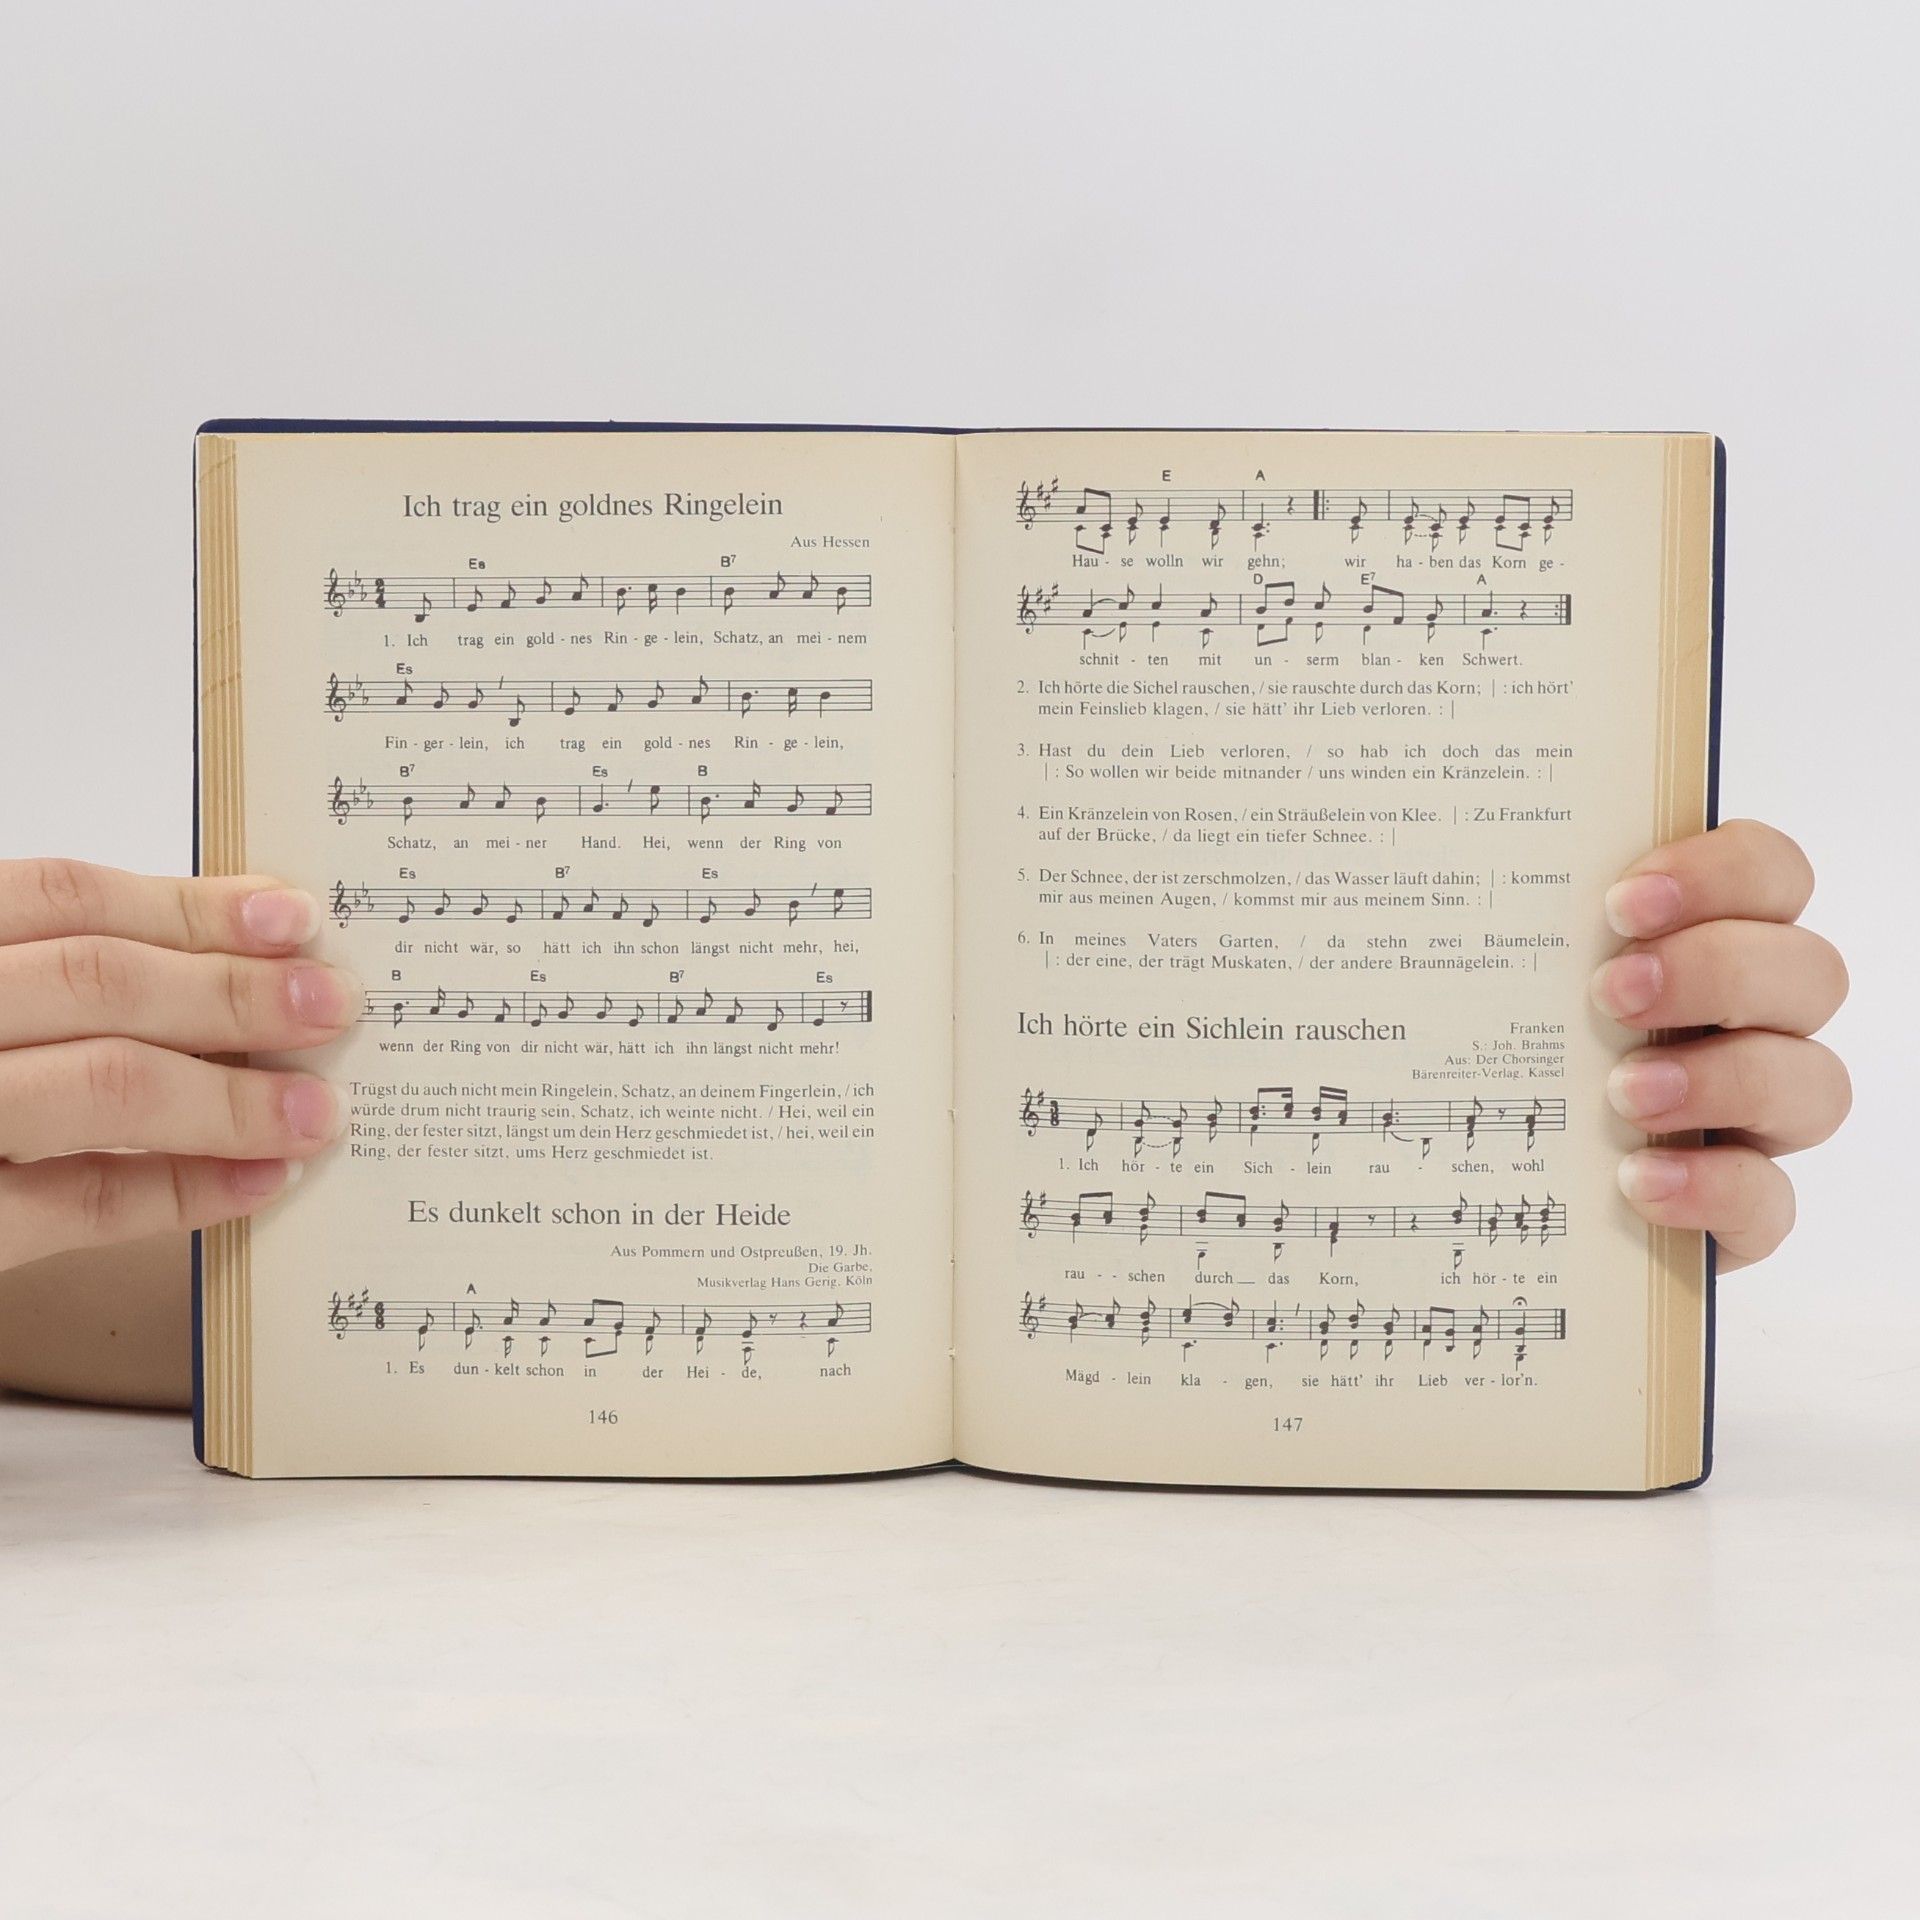 Ich trag ein goldnes Ringelein
Aus Hessen
Es B7
1. Ich trag ein gold - nes Rin - ge - lein, Schatz, an mei - nem
Es
Fin - ger - lein, ich trag ein gold - nes Rin - ge - lein,
B7 Es B
Schatz, an mei - ner Hand. Hei, wenn der Ring von
Es B7 Es
dir nicht wär, so hätt ich ihn schon längst nicht mehr, hei,
B Es B7 Es
wenn der Ring von dir nicht wär, hätt ich ihn längst nicht mehr!
Trügst du auch nicht mein Ringelein, Schatz, an deinem Fingerlein, / ich
würde drum nicht traurig sein, Schatz, ich weinte nicht. / Hei, weil ein
Ring, der fester sitzt, längst um dein Herz geschmiedet ist, / hei, weil ein
Ring, der fester sitzt, ums Herz geschmiedet ist.
Es dunkelt schon in der Heide
Aus Pommern und Ostpreußen, 19. Jh.
Die Garbe,
Musikverlag Hans Gerig, Köln
A
1. Es dun - kelt schon in der Hei - de, nach
146
E A
Hau - se wolln wir gehn; wir ha - ben das Korn ge -
D E7 A
schnit - ten mit un - serm blan - ken Schwert.
2. Ich hörte die Sichel rauschen, / sie rauschte durch das Korn; | : ich hört'
mein Feinslieb klagen, / sie hätt' ihr Lieb verloren. : |
3. Hast du dein Lieb verloren, / so hab ich doch das mein
| : So wollen wir beide mitnander / uns winden ein Kränzelein. : |
4. Ein Kränzelein von Rosen, / ein Sträußelein von Klee. | : Zu Frankfurt
auf der Brücke, / da liegt ein tiefer Schnee. : |
5. Der Schnee, der ist zerschmolzen, / das Wasser läuft dahin; | : kommst
mir aus meinen Augen, / kommst mir aus meinem Sinn. : |
6. In meines Vaters Garten, / da stehn zwei Bäumelein,
| : der eine, der trägt Muskaten, / der andere Braunnägelein. : |
Ich hörte ein Sichlein rauschen
Franken
S.: Joh. Brahms
Aus: Der Chorsinger
Bärenreiter-Verlag, Kassel
1. Ich hör - te ein Sich - lein rau - schen, wohl
rau - - schen durch das Korn, ich hör - te ein
Mägd - lein kla - gen, sie hätt' ihr Lieb ver - lor'n.
147